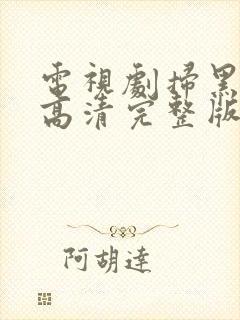 電視劇掃黑
高清完整版
阿胡達